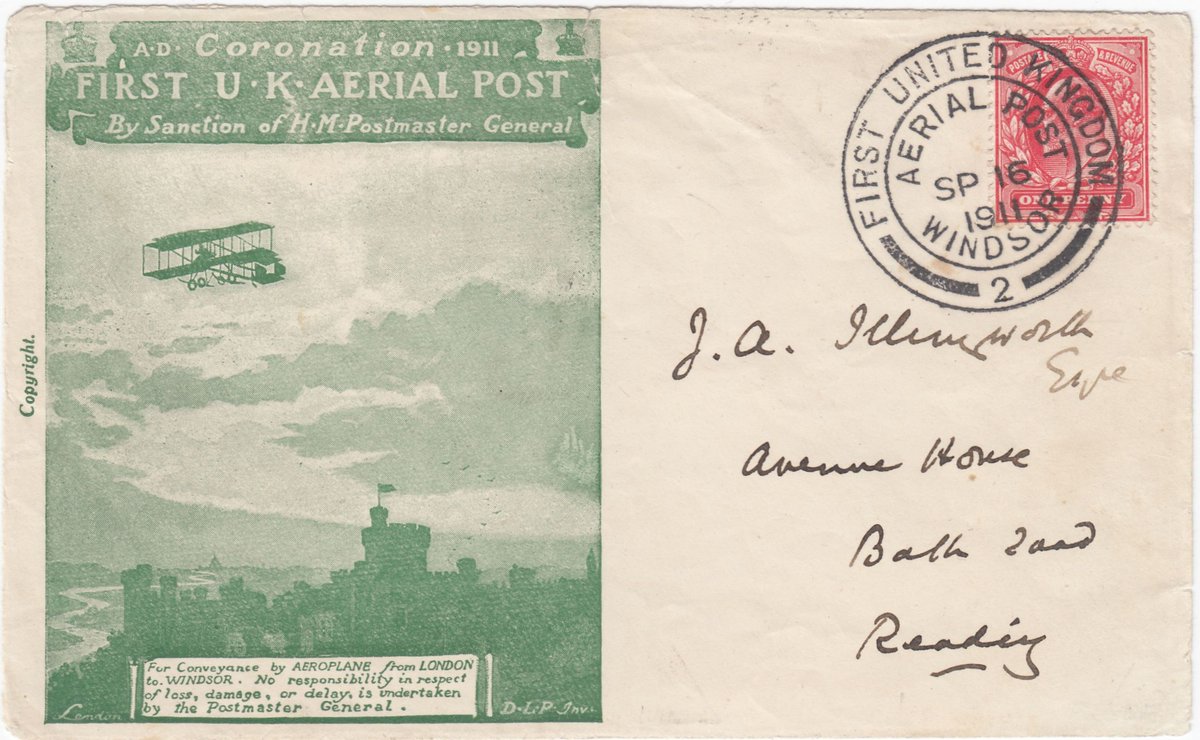 A·D· Coronation · 1911
FIRST U·K·AERIAL POST
By Sanction of H·M·Postmaster General
Copyright.
For Conveyance by AEROPLANE from LONDON
to WINDSOR. No responsibility in respect
of loss, damage, or delay, is undertaken
by the Postmaster General.
London
D·L·P·Inv.
POSTAGE & REVENUE
ONE PENNY
FIRST UNITED KINGDOM
AERIAL POST
SP 16
1911
WINDSOR
2
J. A. Illingworth
Esqe
Avenue House
Bath Road
Reading